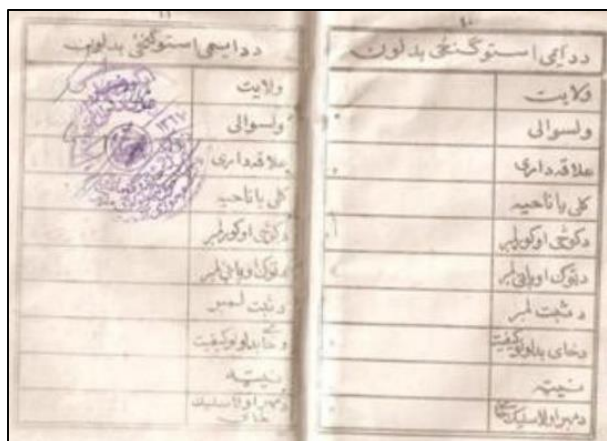 ١٠
د دایمی استوگنځی بدلون
ولایت
ولسوالی
علاقه داری
کلی یا ناحیه
د کوڅی او کور لمبر
د ټوک او پاڼی لمبر
د ثبت لمبر
د ځای بدلولو کیفیت
نیټه
د مهر او لاسلیک ځای
١١
د دایمی استوگنځی بدلون
ولایت
ولسوالی
علاقه داری
کلی یا ناحیه
د کوڅی او کور لمبر
د ټوک او پاڼی لمبر
د ثبت لمبر
د ځای بدلولو کیفیت
نیټه
د مهر او لاسلیک
ځای